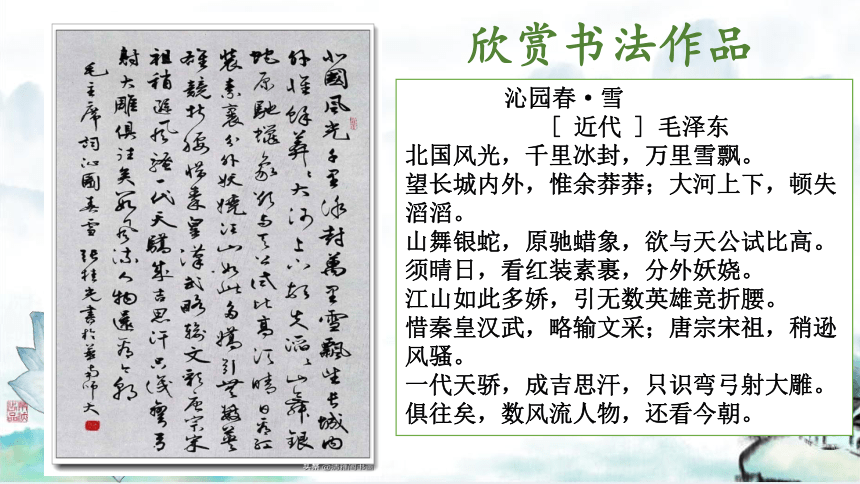 欣赏书法作品
北國風光千里冰封萬里雪飄望長城内
外惟餘莽々大河上下頓失滔々山舞銀
蛇原馳蠟象欲与天公試比高須晴日看紅
裝素裹分外妖嬈江山如此多嬌引無數英
雄競折腰惜秦皇漢武略輸文彩唐宗宋
祖稍遜風騷一代天驕成吉思汗只識彎弓
射大雕俱往矣數風流人物還看今朝
毛主席詞沁園春雪 張桂光書於華南師大
沁园春·雪
[ 近代 ] 毛泽东
北国风光，千里冰封，万里雪飘。
望长城内外，惟余莽莽；大河上下，顿失
滔滔。
山舞银蛇，原驰蜡象，欲与天公试比高。
须晴日，看红装素裹，分外妖娆。
江山如此多娇，引无数英雄竞折腰。
惜秦皇汉武，略输文采；唐宗宋祖，稍逊
风骚。
一代天骄，成吉思汗，只识弯弓射大雕。
俱往矣，数风流人物，还看今朝。